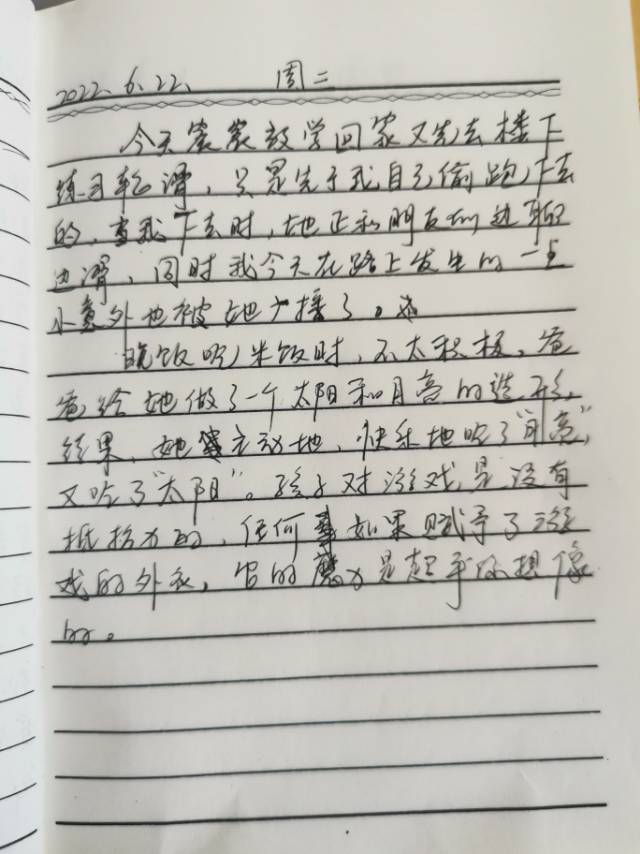 2022.6.22. 周二
今天宸宸放学回家又先去楼下
练习轮滑，只是先于我自己偷跑下去
的，当我下去时，她正和朋友们边聊
边滑，同时我今天在路上发生的一点
小意外也被她广播了。
晚饭吃米饭时，不太积极，爸
爸给她做了一个太阳和月亮的造形，
结果，她主动地，快乐地吃了“月亮”，
又吃了“太阳”。孩子对游戏是没有
抵抗力的，任何事如果赋予了游
戏的外衣，它的魔力是超乎你想像
的。